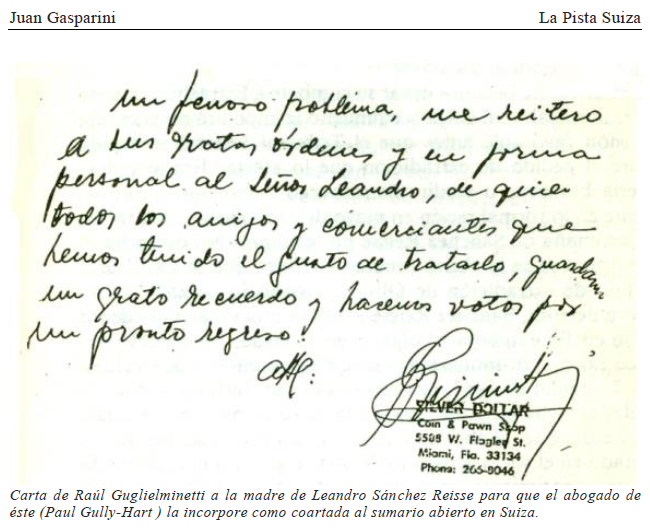 Juan Gasparini La Pista Suiza
un penoso problema, me reitero
a sus gratas órdenes y en forma
personal al Señor Leandro, de quien
todos los amigos y comerciantes que
hemos tenido el gusto de tratarlo, guardamos
un grato recuerdo y hacemos votos por
un pronto regreso
Att.
SILVER DOLLAR
Coin & Pawn Shop
5508 W. Flagler St.
Miami, Fla. 33134
Phone: 266-8046
Carta de Raúl Guglielminetti a la madre de Leandro Sánchez Reisse para que el abogado de
éste (Paul Gully-Hart ) la incorpore como coartada al sumario abierto en Suiza.